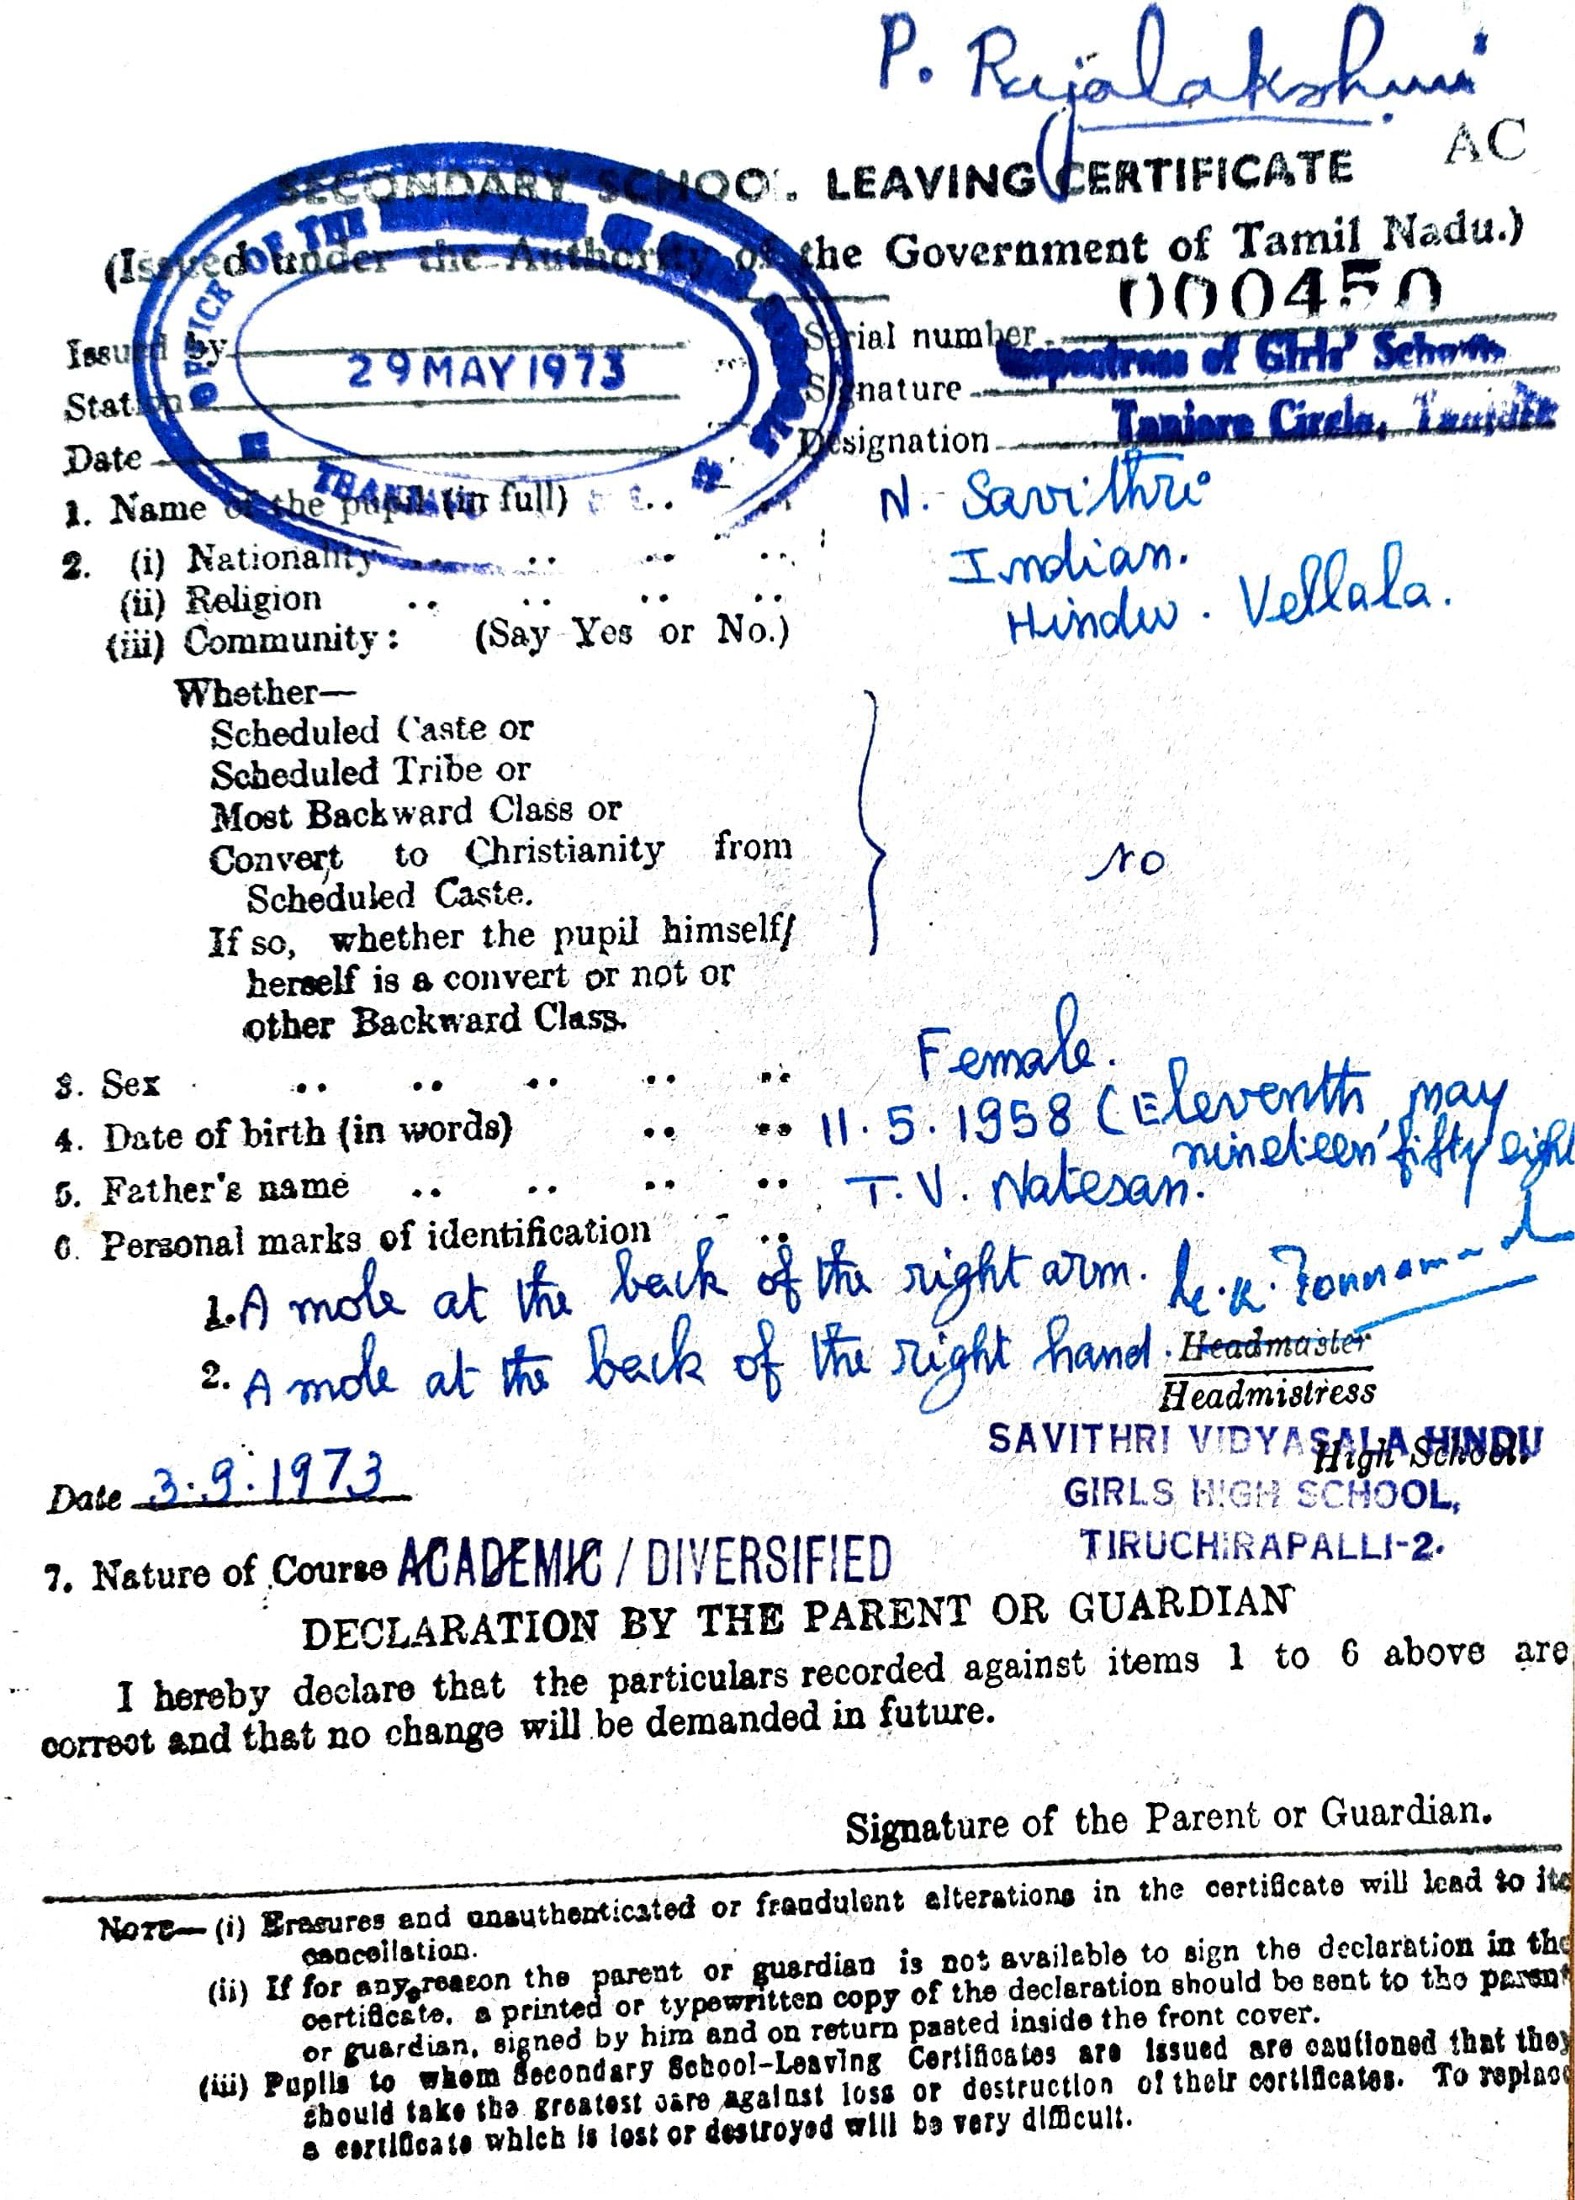 P. Rajalakshmi
AC
SECONDARY SCHOOL LEAVING CERTIFICATE
(Issued under the Authority of the Government of Tamil Nadu.)
OFFICE OF THE
000450
Issued by
Serial number
29 MAY 1973
of Girls' Schools
Station
Signature
Tanjore Circle, Tanjore
Date
Designation
1. Name of the pupil (in full) N. Savithri
2. (i) Nationality Indian.
(ii) Religion Hindu. Vellala.
(iii) Community: (Say Yes or No.)
Whether—
Scheduled Caste or
Scheduled Tribe or
Most Backward Class or
Convert to Christianity from
Scheduled Caste.
no
If so, whether the pupil himself/
herself is a convert or not or
other Backward Class.
3. Sex Female.
4. Date of birth (in words) 11.5.1958 (Eleventh may
nineteen fifty eight
5. Father's name T.V. Natesan.
6. Personal marks of identification
1. A mole at the back of the right arm.
2. A mole at the back of the right hand.
Headmaster
Headmistress
SAVITHRI VIDYASALA HINDU
High School.
GIRLS HIGH SCHOOL,
TIRUCHIRAPALLI-2.
Date 3.9.1973
7. Nature of Course ACADEMIC / DIVERSIFIED
DECLARATION BY THE PARENT OR GUARDIAN
I hereby declare that the particulars recorded against items 1 to 6 above are
correct and that no change will be demanded in future.
Signature of the Parent or Guardian.
NOTE— (i) Erasures and unauthenticated or fraudulent alterations in the certificate will lead to its
cancellation.
(ii) If for any reason the parent or guardian is not available to sign the declaration in the
certificate, a printed or typewritten copy of the declaration should be sent to the parent
or guardian, signed by him and on return pasted inside the front cover.
(iii) Pupils to whom Secondary School-Leaving Certificates are issued are cautioned that they
should take the greatest care against loss or destruction of their certificates. To replace
a certificate which is lost or destroyed will be very difficult.